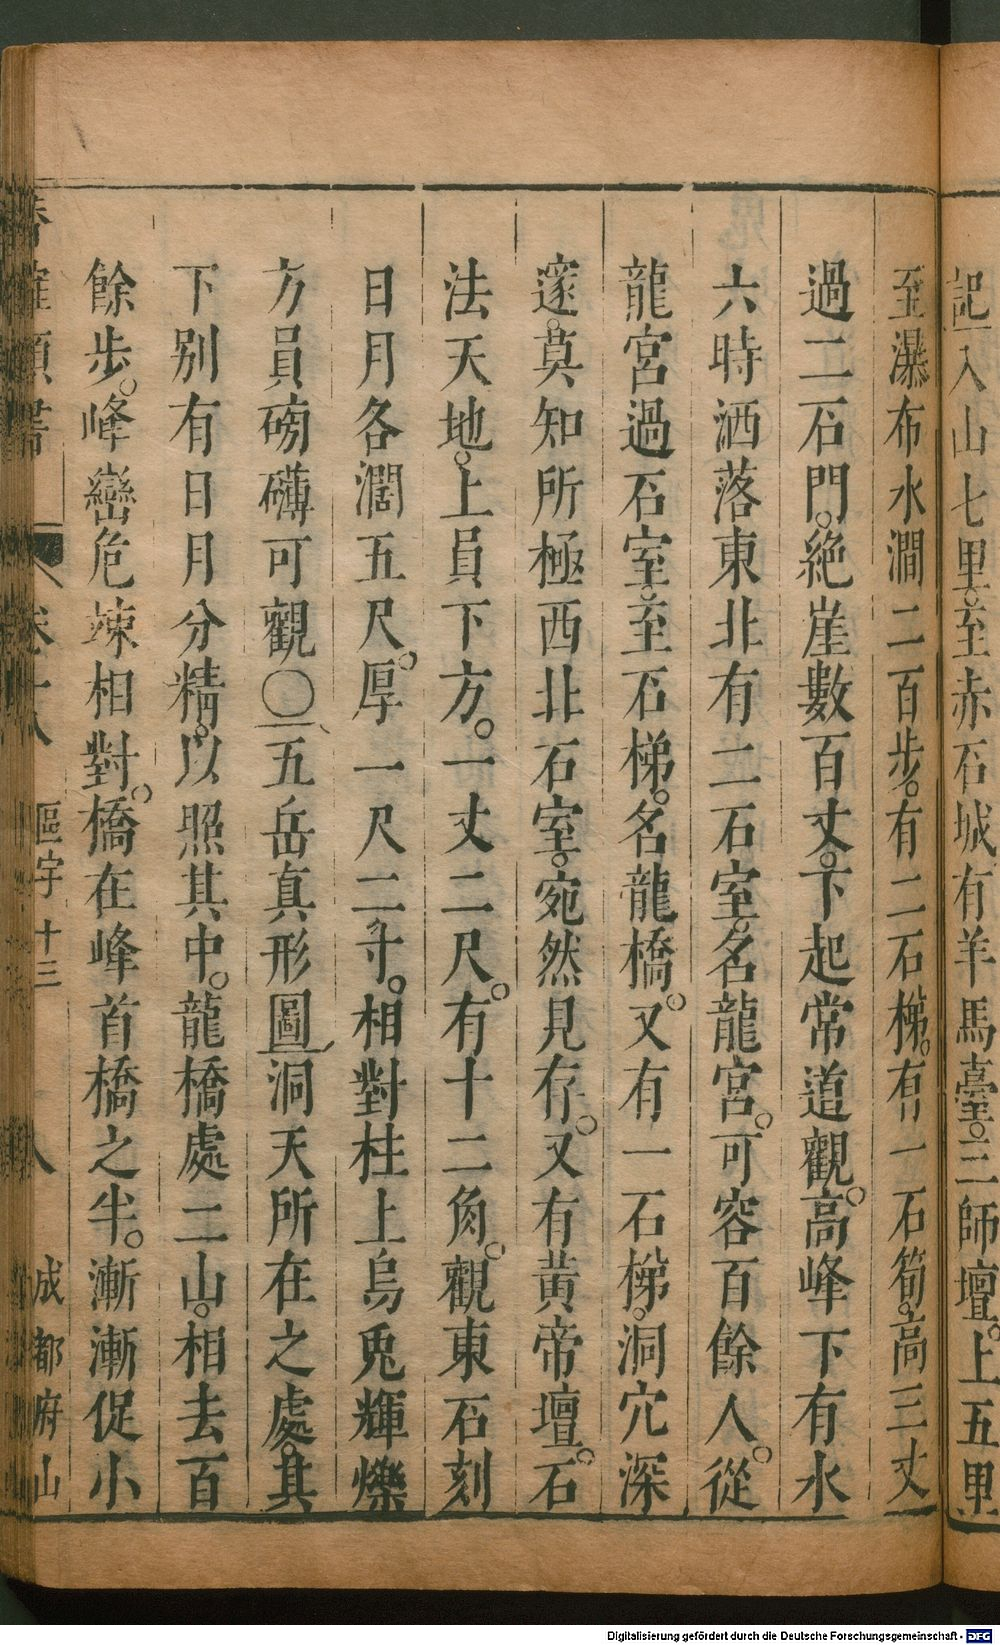 記入山七里至赤石城有羊馬臺三師壇上五里
至瀑布水澗二百步有二石梯有一石筍高三丈
過二石門絕崖數百丈下起常道觀高峰下有水
六時洒落東北有二石室名龍宮可容百餘人從
龍宮過石室至石梯名龍橋又有一石梯洞穴深
邃莫知所極西北石室宛然見存又有黃帝壇石
法天地上員下方一丈二尺有十二角觀東石刻
日月各濶五尺厚一尺二寸相對柱上烏兎輝爍
方員磅礴可觀〇五岳真形圖洞天所在之處其
下別有日月分精以照其中龍橋處二山相去百
餘步峰巒危竦相對橋在峰首橋之半漸漸促小
卷十八 區宇十三 八 成都府山
Digitalisierung gefördert durch die Deutsche Forschungsgemeinschaft - DFG